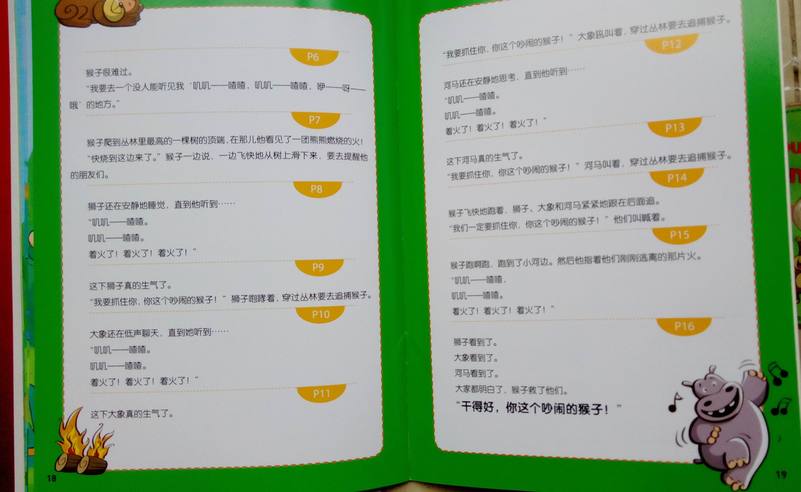 P6
猴子很难过。
“我要去一个没人能听见我‘叽叽——喳喳，叽叽——喳喳，咿——呀——
哦’的地方。”
P7
猴子爬到丛林里最高的一棵树的顶端，在那儿他看见了一团熊熊燃烧的火！
“快跑到这边来了。”猴子一边说，一边飞快地从树上滑下来，要去提醒他
的朋友们。
P8
狮子还在安静地睡觉，直到他听到……
“叽叽——喳喳。
叽叽——喳喳。
着火了！着火了！着火了！”
P9
这下狮子真的生气了。
“我要抓住你，你这个吵闹的猴子！”狮子咆哮着，穿过丛林要去追捕猴子。
P10
大象还在低声聊天，直到她听到……
“叽叽——喳喳。
叽叽——喳喳。
着火了！着火了！着火了！”
P11
这下大象真的生气了。
18
“我要抓住你，你这个吵闹的猴子！”大象吼叫着，穿过丛林要去追捕猴子。
P12
河马还在安静地思考，直到他听到……
“叽叽——喳喳。
叽叽——喳喳。
着火了！着火了！着火了！”
P13
这下河马真的生气了。
“我要抓住你，你这个吵闹的猴子！”河马叫着，穿过丛林要去追捕猴子。
P14
猴子飞快地跑着，狮子、大象和河马紧紧地跟在后面追。
“我们一定要抓住你，你这个吵闹的猴子！”他们叫喊着。
P15
猴子跑啊跑，跑到了小河边。然后他指着他们刚刚逃离的那片火。
“叽叽——喳喳，
叽叽——喳喳。
着火了！着火了！着火了！”
P16
狮子看到了。
大象看到了。
河马看到了。
大家都明白了，猴子救了他们。
“干得好，你这个吵闹的猴子！”
19